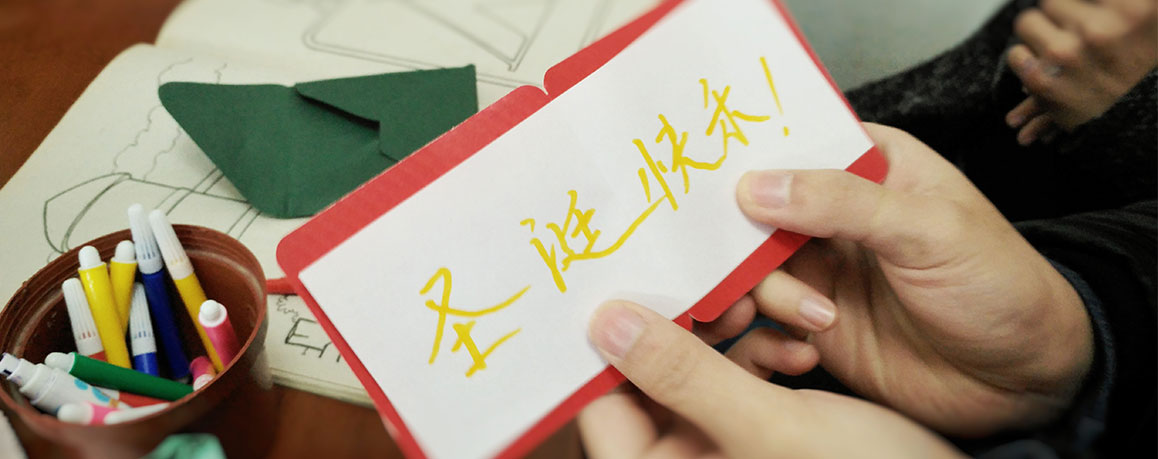 圣诞快乐!